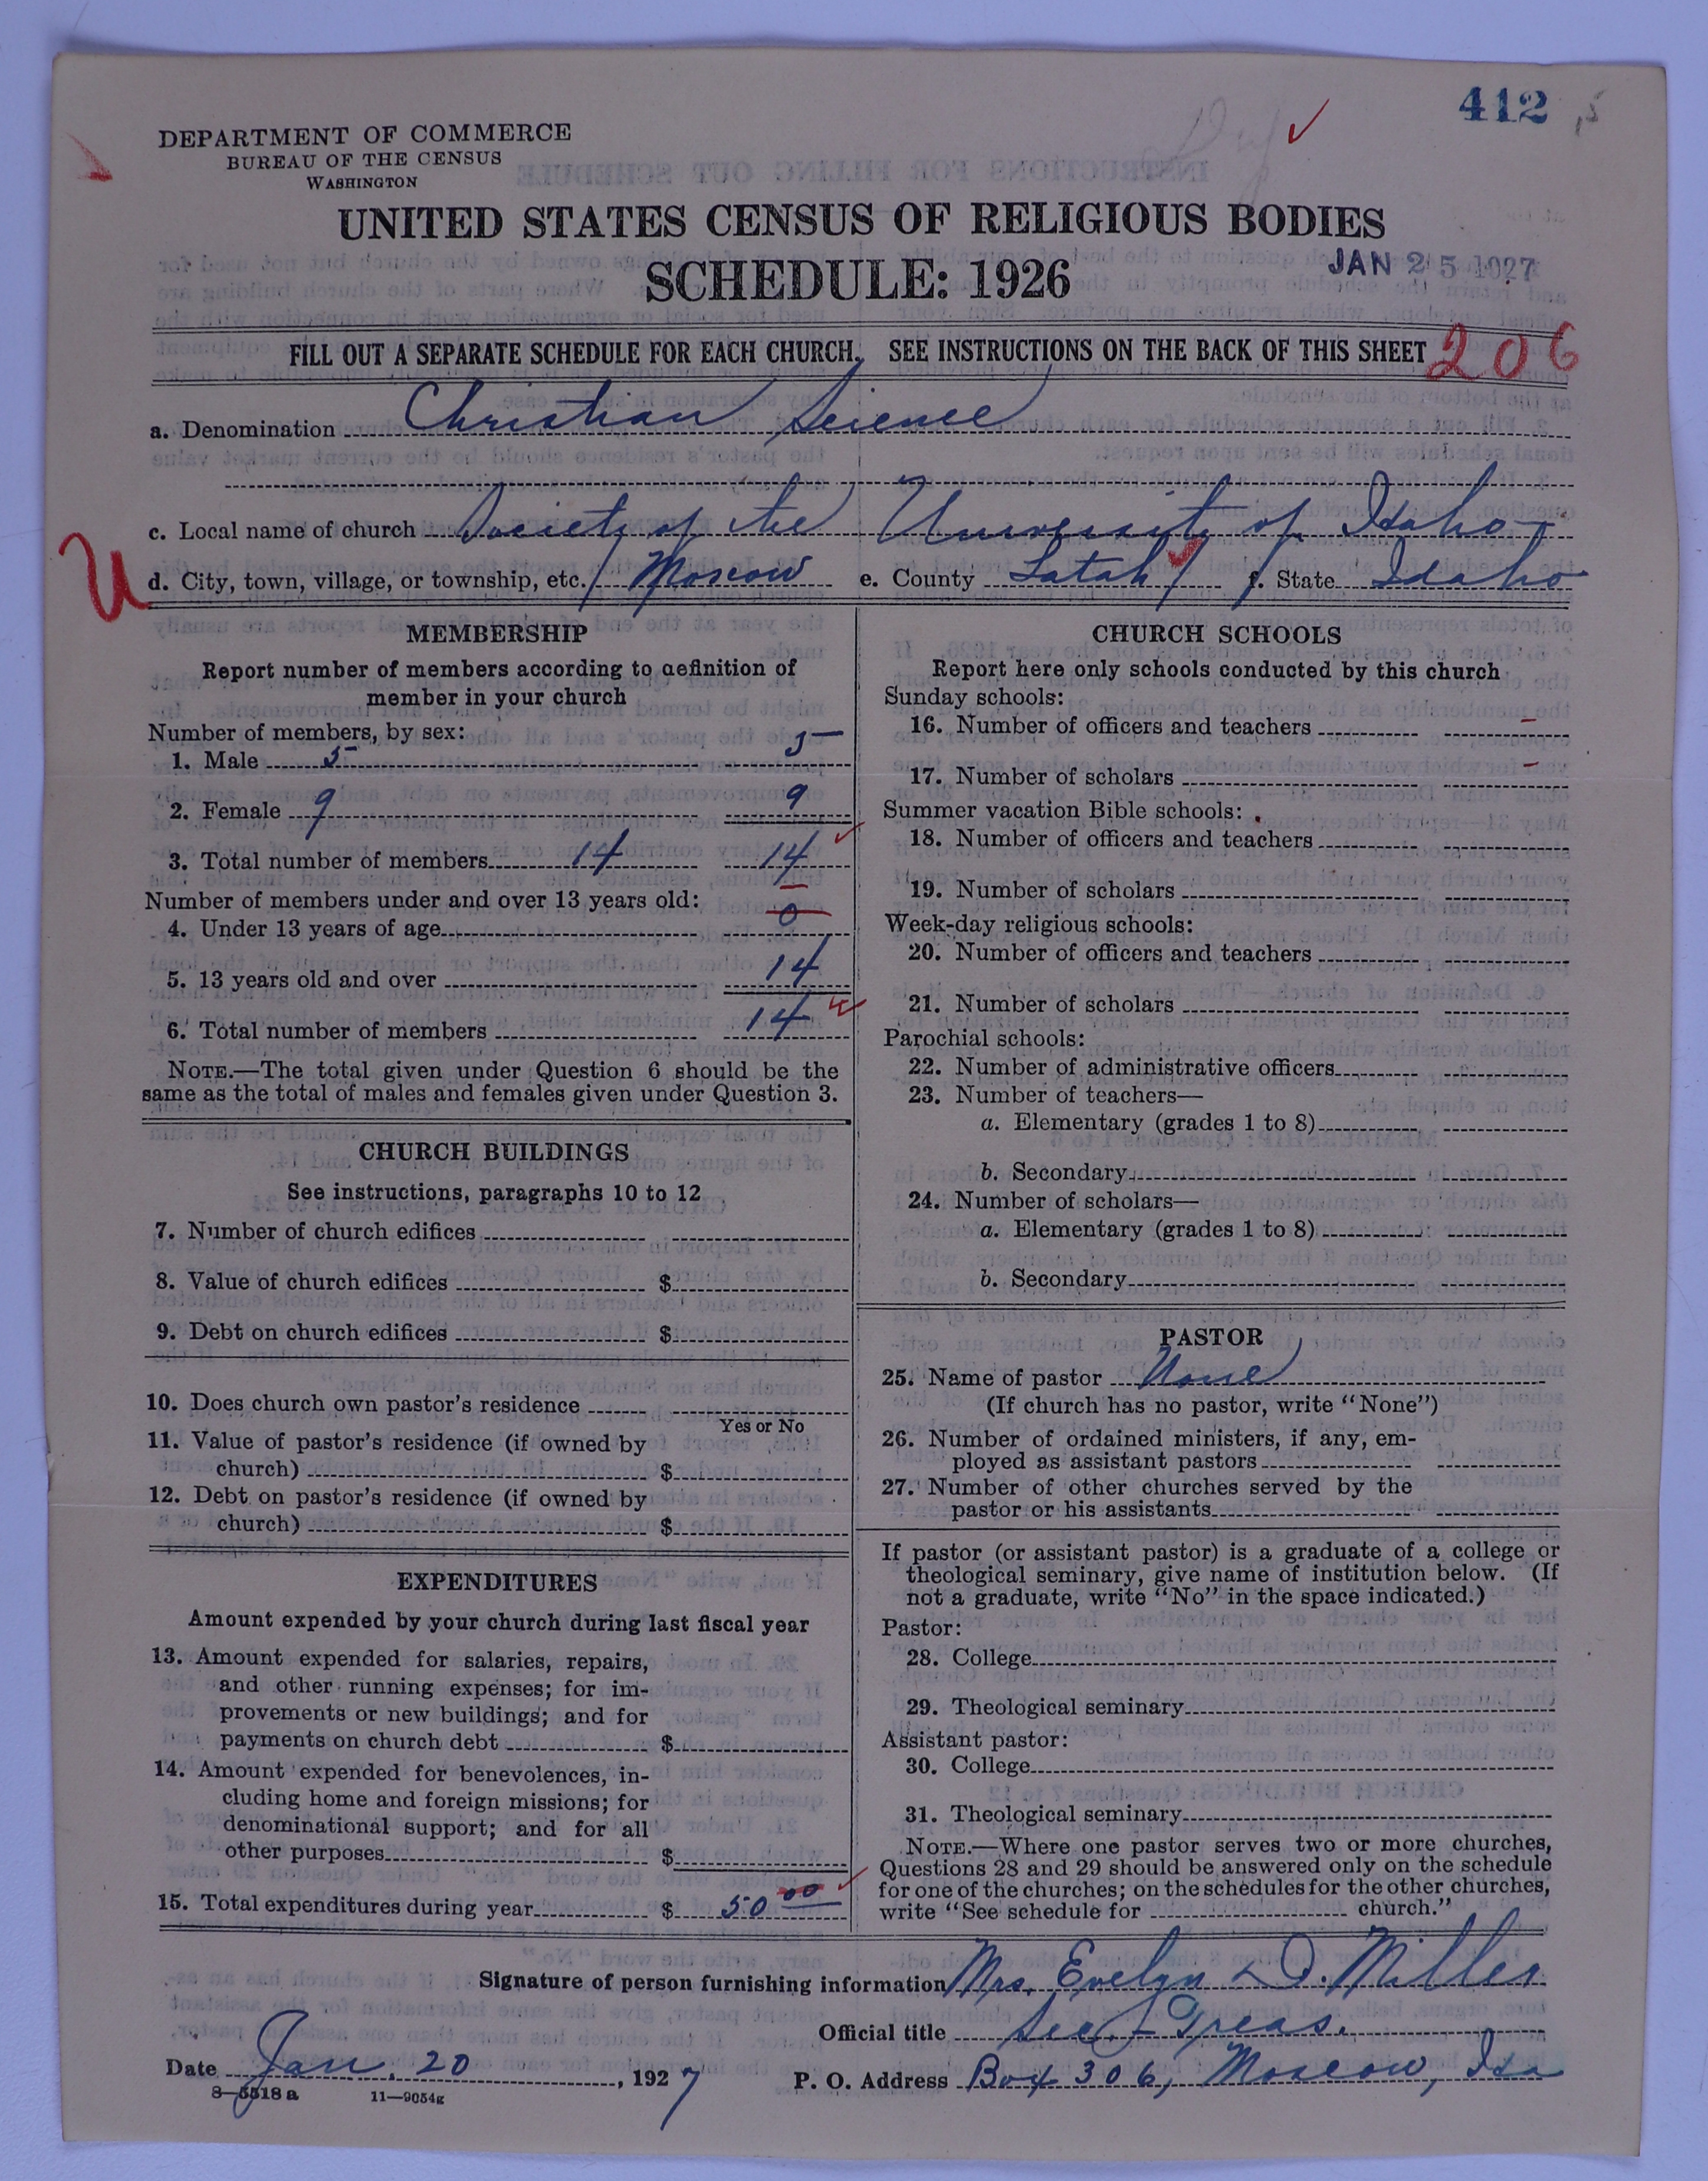 412
DEPARTMENT OF COMMERCE
BUREAU OF THE CENSUS
WASHINGTON
UNITED STATES CENSUS OF RELIGIOUS BODIES
SCHEDULE: 1926
JAN 25 1927
FILL OUT A SEPARATE SCHEDULE FOR EACH CHURCH. SEE INSTRUCTIONS ON THE BACK OF THIS SHEET 206
a. Denomination Christian Science
c. Local name of church Society of the University of Idaho
U
d. City, town, village, or township, etc. Moscow e. County Latah f. State Idaho
MEMBERSHIP
Report number of members according to definition of
member in your church
Number of members, by sex:
1. Male 5 5
2. Female 9 9
3. Total number of members 14 14
Number of members under and over 13 years old:
4. Under 13 years of age 0
5. 13 years old and over 14
6. Total number of members 14
NOTE.—The total given under Question 6 should be the
same as the total of males and females given under Question 3.
CHURCH BUILDINGS
See instructions, paragraphs 10 to 12
7. Number of church edifices
8. Value of church edifices $
9. Debt on church edifices $
10. Does church own pastor's residence
Yes or No
11. Value of pastor's residence (if owned by
church) $
12. Debt on pastor's residence (if owned by
church) $
EXPENDITURES
Amount expended by your church during last fiscal year
13. Amount expended for salaries, repairs,
and other running expenses; for im-
provements or new buildings; and for
payments on church debt $
14. Amount expended for benevolences, in-
cluding home and foreign missions; for
denominational support; and for all
other purposes $
15. Total expenditures during year $ 50 00
CHURCH SCHOOLS
Report here only schools conducted by this church
Sunday schools:
16. Number of officers and teachers –
17. Number of scholars –
Summer vacation Bible schools:
18. Number of officers and teachers
19. Number of scholars
Week-day religious schools:
20. Number of officers and teachers
21. Number of scholars
Parochial schools:
22. Number of administrative officers
23. Number of teachers—
a. Elementary (grades 1 to 8)
b. Secondary
24. Number of scholars—
a. Elementary (grades 1 to 8)
b. Secondary
PASTOR
25. Name of pastor None
(If church has no pastor, write "None")
26. Number of ordained ministers, if any, em-
ployed as assistant pastors
27. Number of other churches served by the
pastor or his assistants
If pastor (or assistant pastor) is a graduate of a college or
theological seminary, give name of institution below. (If
not a graduate, write "No" in the space indicated.)
Pastor:
28. College
29. Theological seminary
Assistant pastor:
30. College
31. Theological seminary
NOTE.—Where one pastor serves two or more churches,
Questions 28 and 29 should be answered only on the schedule
for one of the churches; on the schedules for the other churches,
write "See schedule for church."
Signature of person furnishing information Mrs. Evelyn D. Miller
Official title Sec-Treas.
Date Jan. 20, 1927 P. O. Address Box 306, Moscow, Ida
8-5518a 11-9054g